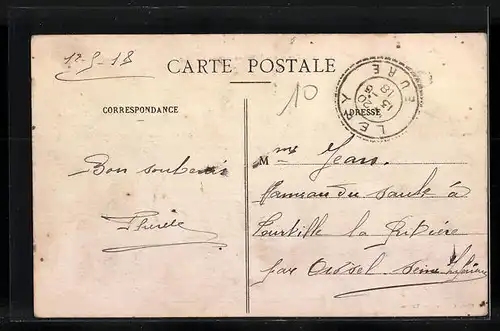 12-9-18
CARTE POSTALE
10
LERY
EURE
CORRESPONDANCE
ADRESSE
Bon souvenir
Mme Jean
Hameau du saule à
Tourville la Rivière
par Oissel Seine Inférieure